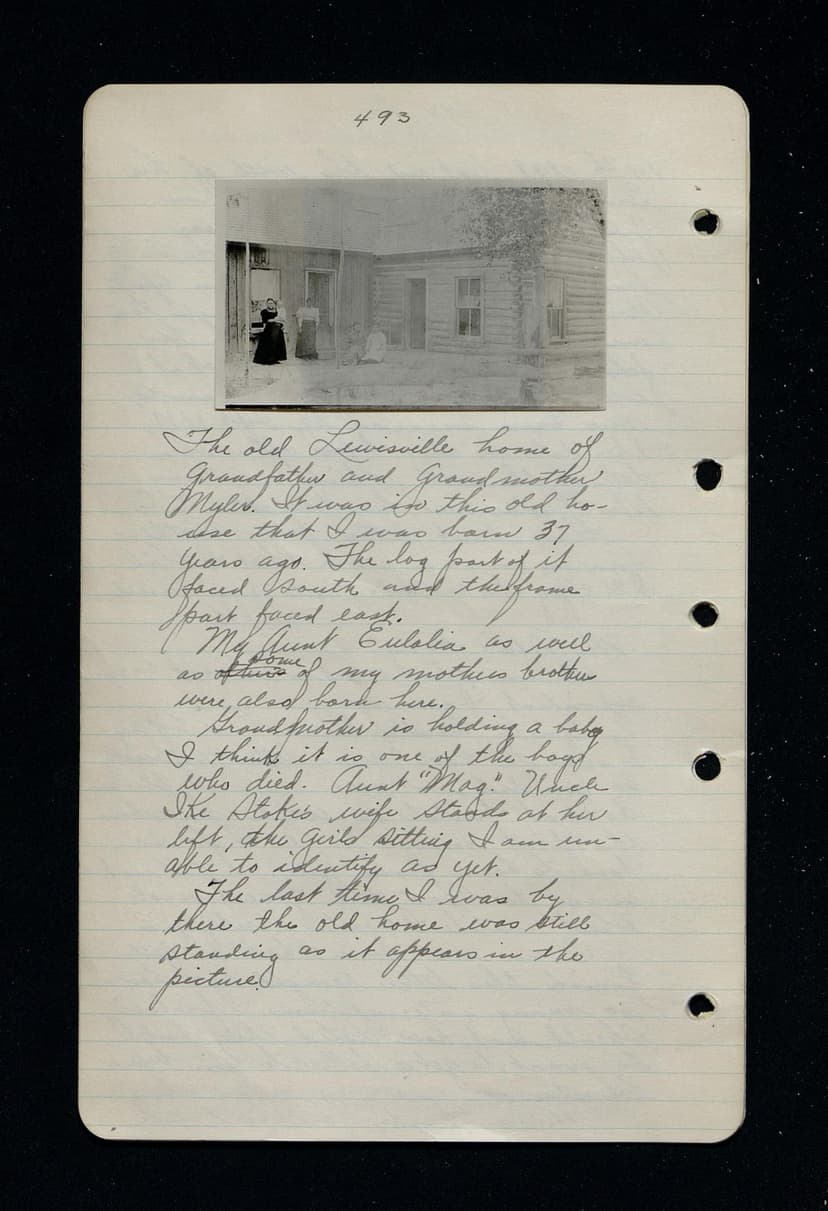 493
The old Lewisville home of
Grandfather and Grandmother
Myler. It was in this old ho-
use that I was born 37
years ago. The log part of it
faced south and the frame
part faced east.
My Aunt Eulalia as well
some
as others of my mothers brothers
were also born here.
Grandmother is holding a baby
I think it is one of the boys
who died. Aunt "Mag." Uncle
Ike Stoke's wife stands at her
left, the girls sitting I am un-
able to identify as yet.
The last time I was by
there the old home was still
standing as it appears in the
picture.